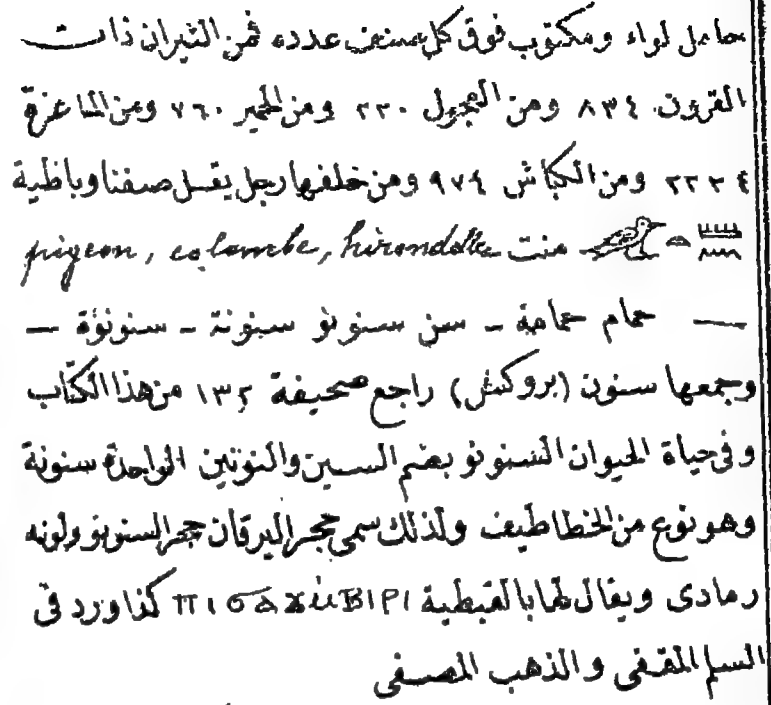 حامل لواء ومكتوب فوق كل صنف عدده فمن الثيران ذات
القرون ٨٣٤ ومن العجول ٢٢٠ ومن الحمير ٧٦٠ ومن الماعزة
٢٢٣٤ ومن الكباش ٩٧٤ ومن خلفها رجل يقسل صفنا وباظية
منت pigeon, colombe, hirondelle
— حمام حمامة - سن سنونو سنونة - سنونوة —
وجمعها سنون (بروكش) راجع صحيفة ١٣٢ من هذا الكتاب
وفي حياة الحيوان السنونو بضم السين والنونين الواحدة سنونة
وهو نوع من الخطاطيف ولذلك سمى حجر اليرقان حجر السنونو ولونه
رمادى ويقال لها بالقبطية كذا ورد فى
السلم المقفى والذهب المصفى